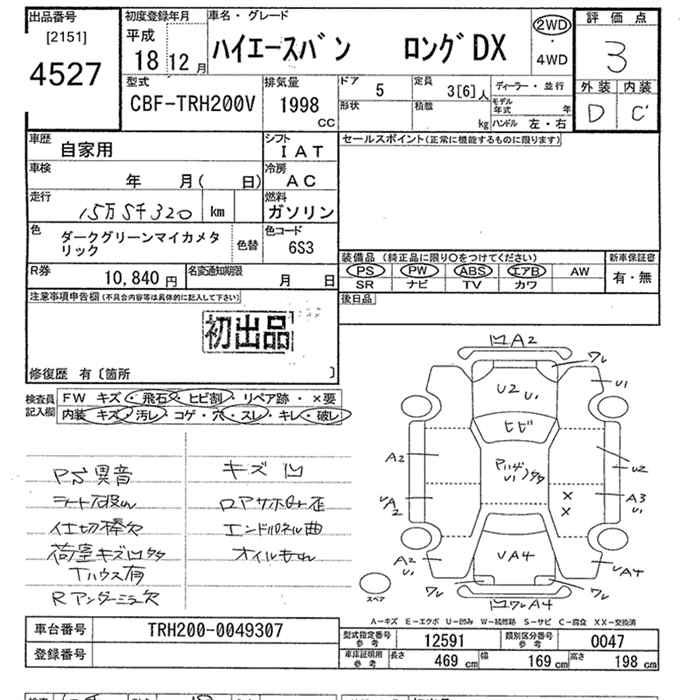 出品番号
[2151]
4527
初度登録年月
平成
18 12 月
車名・グレード
ハイエースバン ロングDX
2WD
・
4WD
評価点
3
外装 内装
D C
型式
CBF-TRH200V
排気量
1998
cc
ドア
5
定員
3[6]人
形状
積載
kg
ディーラー・並行
モデル年式 年
ハンドル 左・右
車歴
自家用
シフト
IAT
車検
年 月( 日)
冷房
AC
走行
15万5千320 km
燃料
ガソリン
色
ダークグリーンマイカメタリック
色替
色コード
6S3
R券
10,840 円
名変通知期限
月 日
セールスポイント(正常に機能するものに限ります)
装備品 (純正品に限り○をつけてください)
PS PW ABS エアB AW
SR ナビ TV カワ
新車保証書
有・無
後日品
注意事項申告欄(不具合内容等は具体的に記入して下さい)
初出品
修復歴 有〔箇所 〕
検査員
記入欄
FW キズ・飛石・ヒビ割・リペア跡・×要
内装 キズ・汚レ・コゲ・穴・スレ・キレ・破レ
PS異音
シート破れ
仕切棒欠
荷室キズ凹多
Tハウス有
Rアンダーミラー欠
キズ凹
ロアサポート歪
エンドパネル曲
オイルもれ
凹A2
ワレ
U2 U1
U1
ヒビ
A2
U2
A2
A3
U1
×
×
A2
U1
UA4
UA4
ワレ
ワレ
凹ワレA4
スペア
A-キズ E-エクボ U-凹み W-補修跡 S-サビ C-腐食 XX-交換済
車台番号
TRH200-0049307
登録番号
型式指定番号
参考
12591
類別区分番号
参考
0047
車庫証明用
参考
長さ 469 cm
幅 169 cm
高さ 198 cm